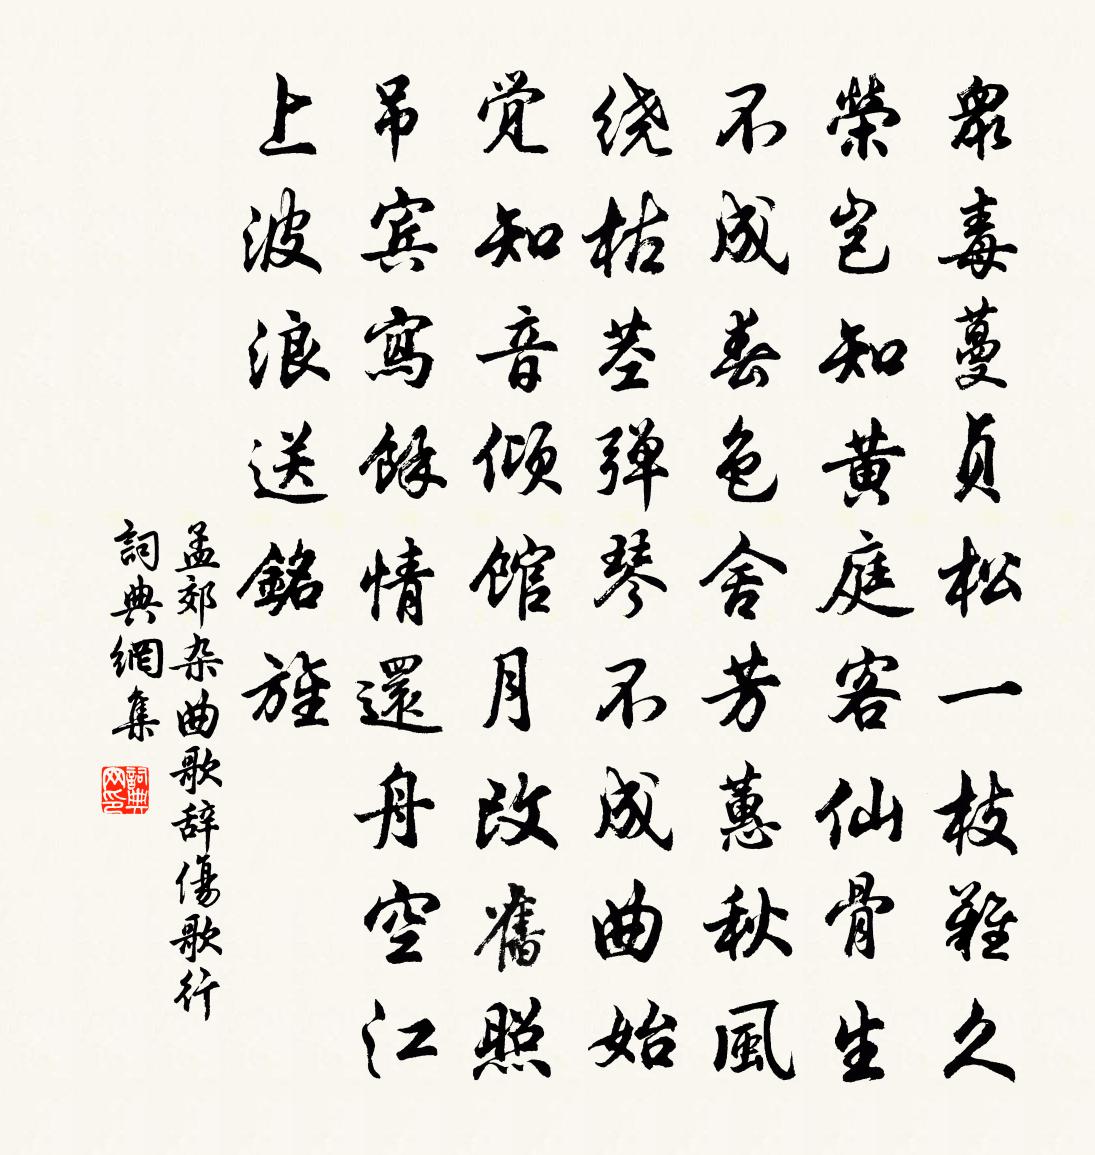 眾毒蔓貞松一枝難久
榮岂知黄庭客仙骨生
不成春色舍芳蕙秋風
绕枯茎弹琴不成曲始
覚知音倾馆月改舊照
吊宾寫餘情還舟空江
上波浪送銘旌
孟郊杂曲歌辞傷歌行
詞典網集
詞典网印